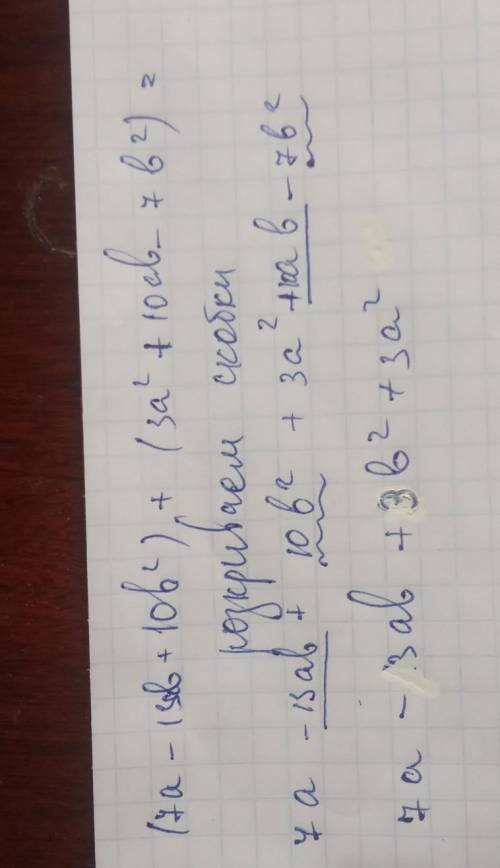 (7a - 13ab + 10b²) + (3a² + 10ab - 7b²) =
розкриваем скобки
7a - 13ab + 10b² + 3a² + 10ab - 7b²
7a - 3ab + 3b² + 3a²